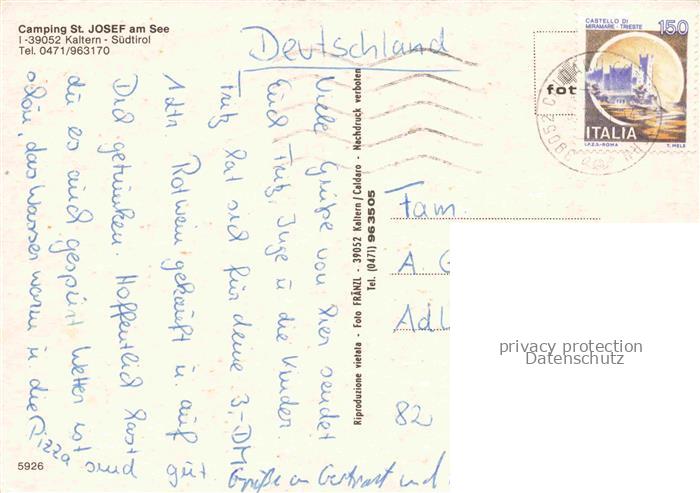 Camping St. JOSEF am See
I -39052 Kaltern - Südtirol
Tel. 0471/963170
Deutschland
CASTELLO DI
MIRAMARE - TRIESTE
150
ITALIA
I.P.Z.S.-ROMA
T. MELE
fot
Viele Grüße von hier sendet
Euch Fritz, Inge u. die Kinder.
Fritz hat sich für deine 3,-DM
1 Ltr. Rotwein gekauft u. auf gut
Did getrunken. Hoffentlich hast
du es auch gespürt Wetter ist
schön, das Wasser warm u. die Pizza
sind
Grüße an und
Riproduzione vietata - Foto FRÄNZL - 39052 Kaltern/Caldaro - Nachdruck verboten
Tel. (0471) 963505
Fam.
A.
Adl
82
privacy protection
Datenschutz
5926